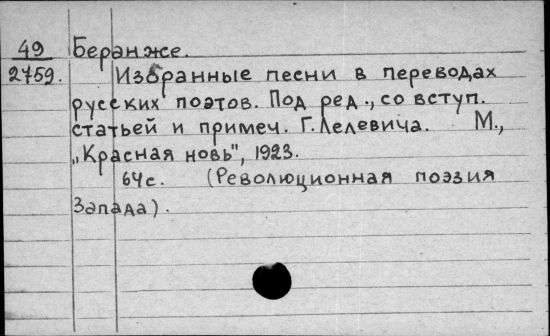 49 Беранже.
2759. Избранные песни в переводах
русских поэтов. Под ред., со вступ.
статьей и примеч. Г. Лелевича. М.,
„Красная новь", 1923.
64 с. (Революционная поэзия
Запада).